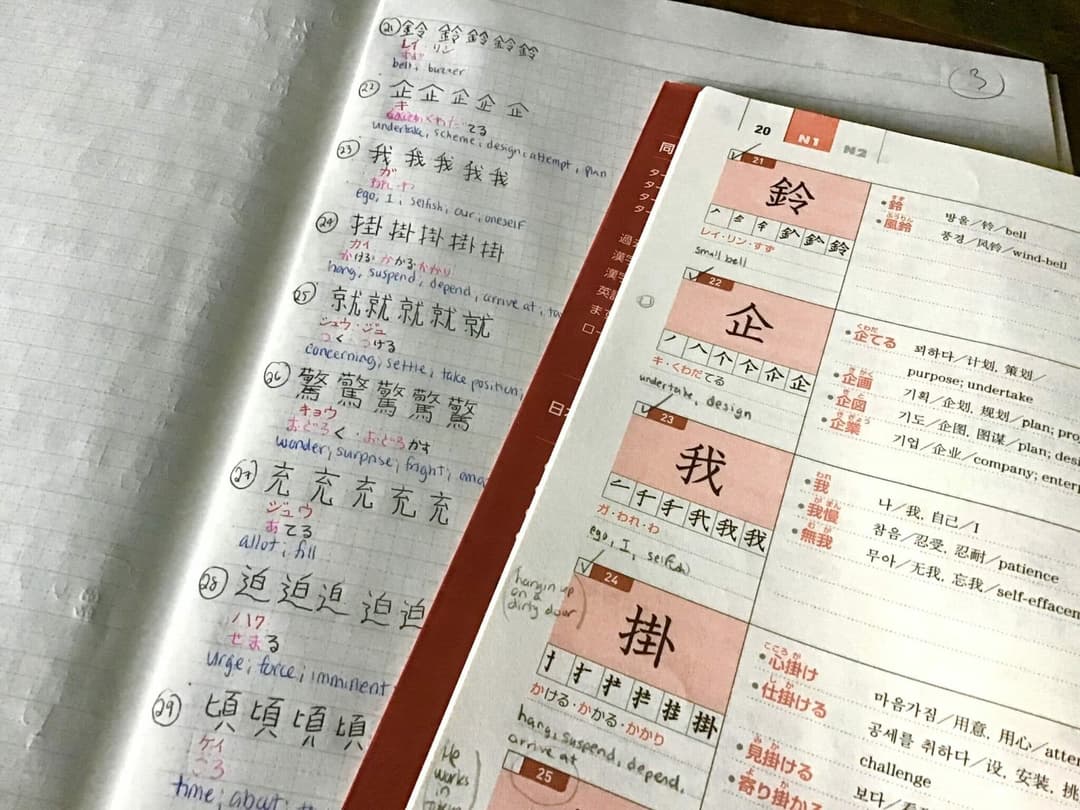 3
21 鈴 鈴 鈴 鈴 鈴
レイ・リン
すず
bell, buzzer
22 企 企 企 企 企
キ
くわだてる
undertake, scheme, design, attempt, plan
23 我 我 我 我 我
ガ
われ・わ
ego, I, selfish, our, oneself
24 掛 掛 掛 掛 掛
カイ
かける・かかる・かかり
hang, suspend, depend, arrive at,
25 就 就 就 就 就
シュウ・ジュ
つく・つける
concerning, settle, take position,
26 驚 驚 驚 驚 驚
キョウ
おどろく・おどろかす
wonder, surprise, fright,
27 充 充 充 充 充
ジュウ
あてる
allot, fill
28 迫 迫 迫 迫 迫
ハク
せまる
urge, force, imminent
29 頃 頃 頃 頃
ケイ
ころ
time, about
20 N1 N2
21
鈴
レイ・リン・すず
small bell
すず
•鈴 방울/铃/bell
ふうりん
•風鈴 풍경/风铃/wind-bell
22
企
キ・くわだてる
undertake, design
くわだ
•企てる 꾀하다/计划, 策划/
purpose; undertake
きかく
•企画 기획/企划, 规划/plan;
きと
•企図 기도/企图, 图谋/plan;
きぎょう
•企業 기업/企业/company;
23
我
ガ・われ・わ
ego, I, selfish
われ
•我 나/我, 自己/I
がまん
•我慢 참음/忍受, 忍耐/patience
むが
•無我 무아/无我, 忘我/
24
掛
かける・かかる・かかり
hang, suspend, depend,
arrive at
(hangin up
on a
dirty door)
こころが
•心掛け 마음가짐/用意, 用心/
しか
•仕掛ける 공세를 취하다/设, 安装,
challenge
みか
•見掛ける 보다/
よか
•寄り掛かる
25
He
works
in